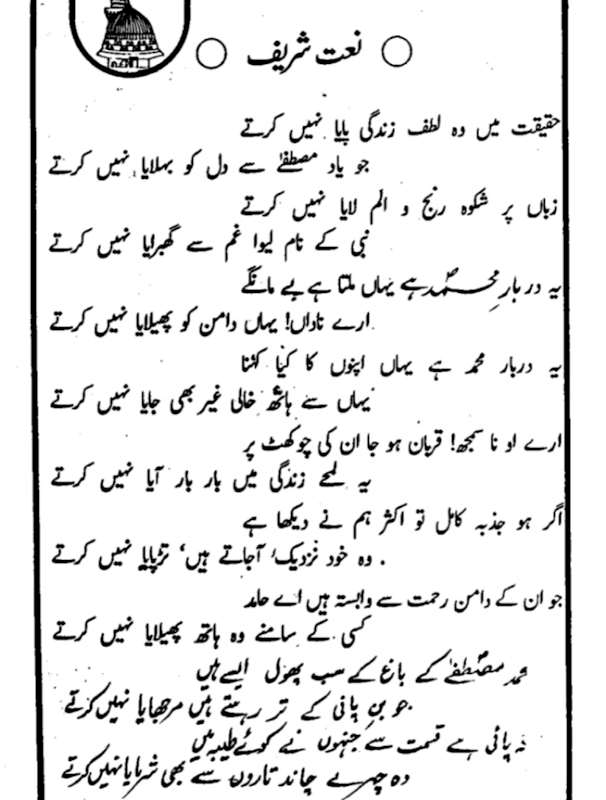 نعت شریف
حقیقت میں وہ لطف زندگی پایا نہیں کرتے
جو یاد مصطفےٰ سے دل کو بہلایا نہیں کرتے
زباں پر شکوہ رنج و الم لایا نہیں کرتے
نبی کے نام لیوا غم سے گھبرایا نہیں کرتے
یہ دربارِ محمدؐ ہے یہاں ملتا ہے بے مانگے
ارے ناداں! یہاں دامن کو پھیلایا نہیں کرتے
یہ دربار محمد ہے یہاں اپنوں کا کیا کہنا
یہاں سے ہاتھ خالی غیر بھی جایا نہیں کرتے
ارے او نا سمجھ! قربان ہو جا ان کی چوکھٹ پر
یہ لمحے زندگی میں بار بار آیا نہیں کرتے
اگر ہو جذبہ کامل تو اکثر ہم نے دیکھا ہے
وہ خود نزدیک آجاتے ہیں‘ تڑپایا نہیں کرتے
جو ان کے دامن رحمت سے وابستہ ہیں اے حامد
کسی کے سامنے وہ ہاتھ پھیلایا نہیں کرتے
محمد مصطفےٰؐ کے باغ کے سب پھول ایسے ہیں
جو بن پانی کے تر رہتے ہیں مرجھایا نہیں کرتے
پائی ہے قسمت سے جنہوں نے کوئے طیبہ میں
وہ چہرے چاند تاروں سے بھی شرمایا نہیں کرتے